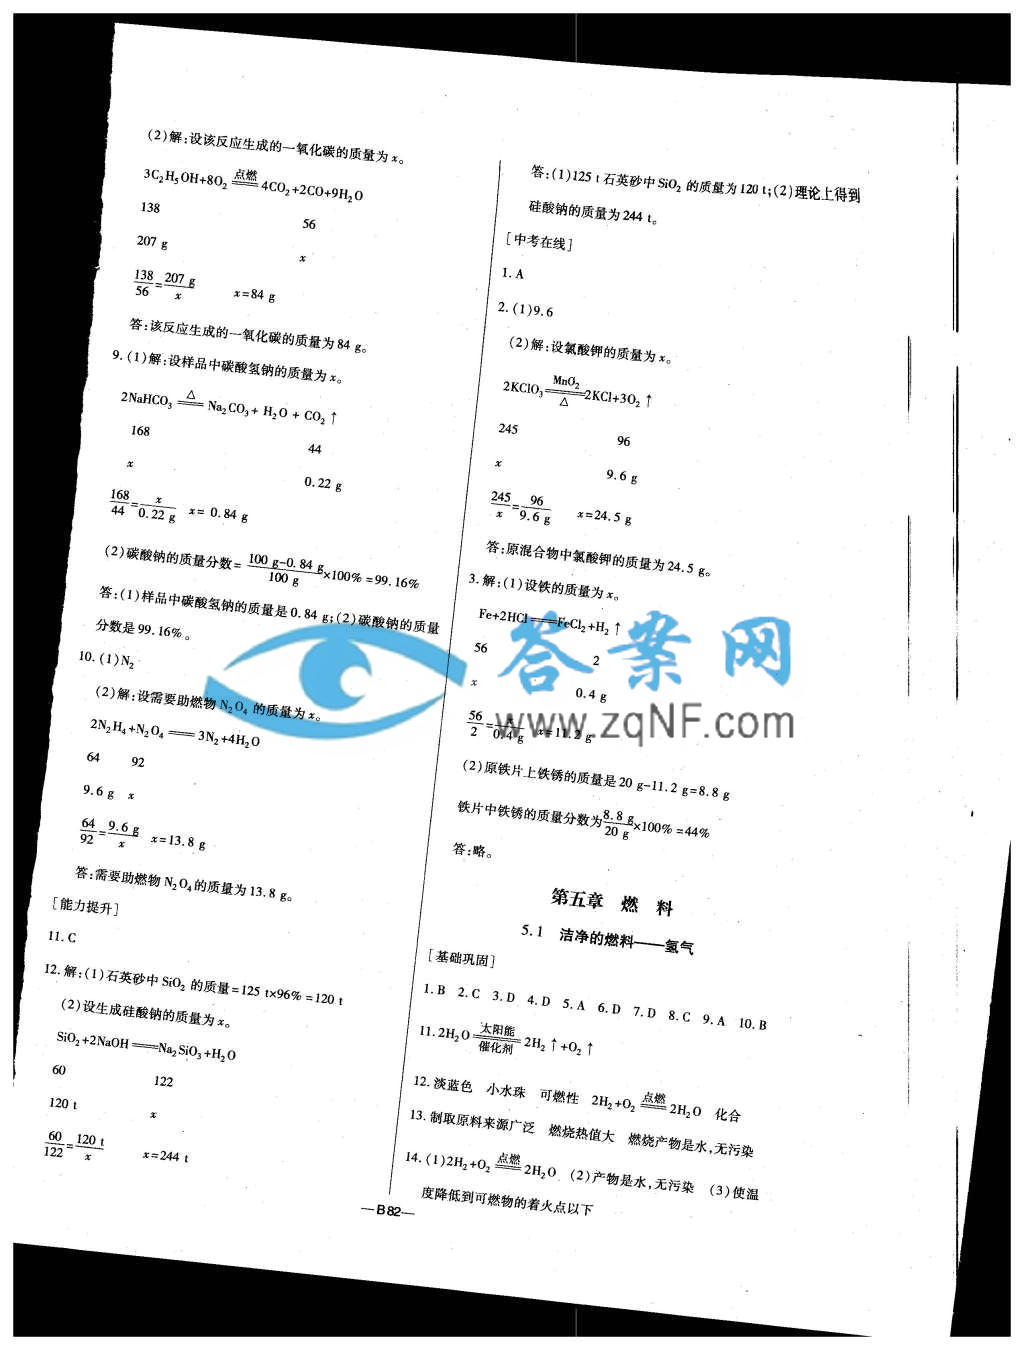 (2)解:设该反应生成的一氧化碳的质量为x。
3C₂H₅OH+8O₂ 点燃 4CO₂+2CO+9H₂O
138 56
207 g x
138/56=207 g/x x=84 g
答:该反应生成的一氧化碳的质量为84 g。
9.(1)解:设样品中碳酸氢钠的质量为x。
2NaHCO₃ △ Na₂CO₃+H₂O+CO₂↑
168 44
x 0.22 g
168/44=x/0.22 g x=0.84 g
(2)碳酸钠的质量分数=100 g-0.84 g/100 g×100%=99.16%
答:(1)样品中碳酸氢钠的质量是0.84 g;(2)碳酸钠的质量
分数是99.16%。
10.(1)N₂
(2)解:设需要助燃物N₂O₄的质量为x。
2N₂H₄+N₂O₄══3N₂+4H₂O
64 92
9.6 g x
64/92=9.6 g/x x=13.8 g
答:需要助燃物N₂O₄的质量为13.8 g。
[能力提升]
11.C
12.解:(1)石英砂中SiO₂的质量=125 t×96%=120 t
(2)设生成硅酸钠的质量为x。
SiO₂+2NaOH══Na₂SiO₃+H₂O
60 122
120 t x
60/122=120 t/x x=244 t
答:(1)125 t石英砂中SiO₂的质量为120 t;(2)理论上得到
硅酸钠的质量为244 t。
[中考在线]
1.A
2.(1)9.6
(2)解:设氯酸钾的质量为x。
2KClO₃ MnO₂ △ 2KCl+3O₂↑
245 96
x 9.6 g
245/x=96/9.6 g x=24.5 g
答:原混合物中氯酸钾的质量为24.5 g。
3.解:(1)设铁的质量为x。
Fe+2HCl══FeCl₂+H₂↑
56 2
x 0.4 g
56/2=x/0.4 g x=11.2 g
(2)原铁片上铁锈的质量是20 g-11.2 g=8.8 g
铁片中铁锈的质量分数为8.8 g/20 g×100%=44%
答:略。
第五章 燃 料
5.1 洁净的燃料——氢气
[基础巩固]
1.B 2.C 3.D 4.D 5.A 6.D 7.D 8.C 9.A 10.B
11.2H₂O 太阳能 催化剂 2H₂↑+O₂↑
12.淡蓝色 小水珠 可燃性 2H₂+O₂ 点燃 2H₂O 化合
13.制取原料来源广泛 燃烧热值大 燃烧产物是水,无污染
14.(1)2H₂+O₂ 点燃 2H₂O (2)产物是水,无污染 (3)使温
度降低到可燃物的着火点以下
—B82—
答案网
www.zqNF.com